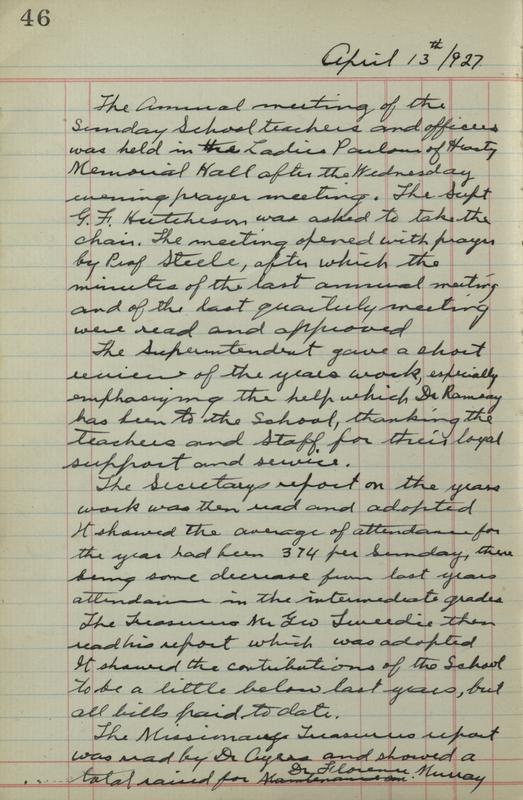 46
April 13th 1927
The Annual meeting of the
Sunday School teachers and officers
was held in the Ladies Parlour of Hasty
Memorial Hall after the Wednesday
evening prayer meeting. The Supt
G. F. Hutcheson was asked to take the
chair. The meeting opened with prayer
by Prof Steele, after which the
minutes of the last annual meeting
and of the last quarterly meeting
were read and approved
The Superintendent gave a short
review of the years work, especially
emphasizing the help which Dr Ramsay
has been to the School, thanking the
teachers and Staff for their loyal
support and service.
The Secretarys report on the years
work was then read and adopted
It showed the average of attendance for
the year had been 374 per Sunday, there
being some decrease from last years
attendance in the intermediate grades
The Treasurers Mr Geo Tweedie then
read his report which was adopted
It showed the contributions of the School
to be a little below last years, but
all bills paid to date.
The Missionary Treasurers report
was read by Dr Ayers and showed a
Dr Florence
total raised for Murray